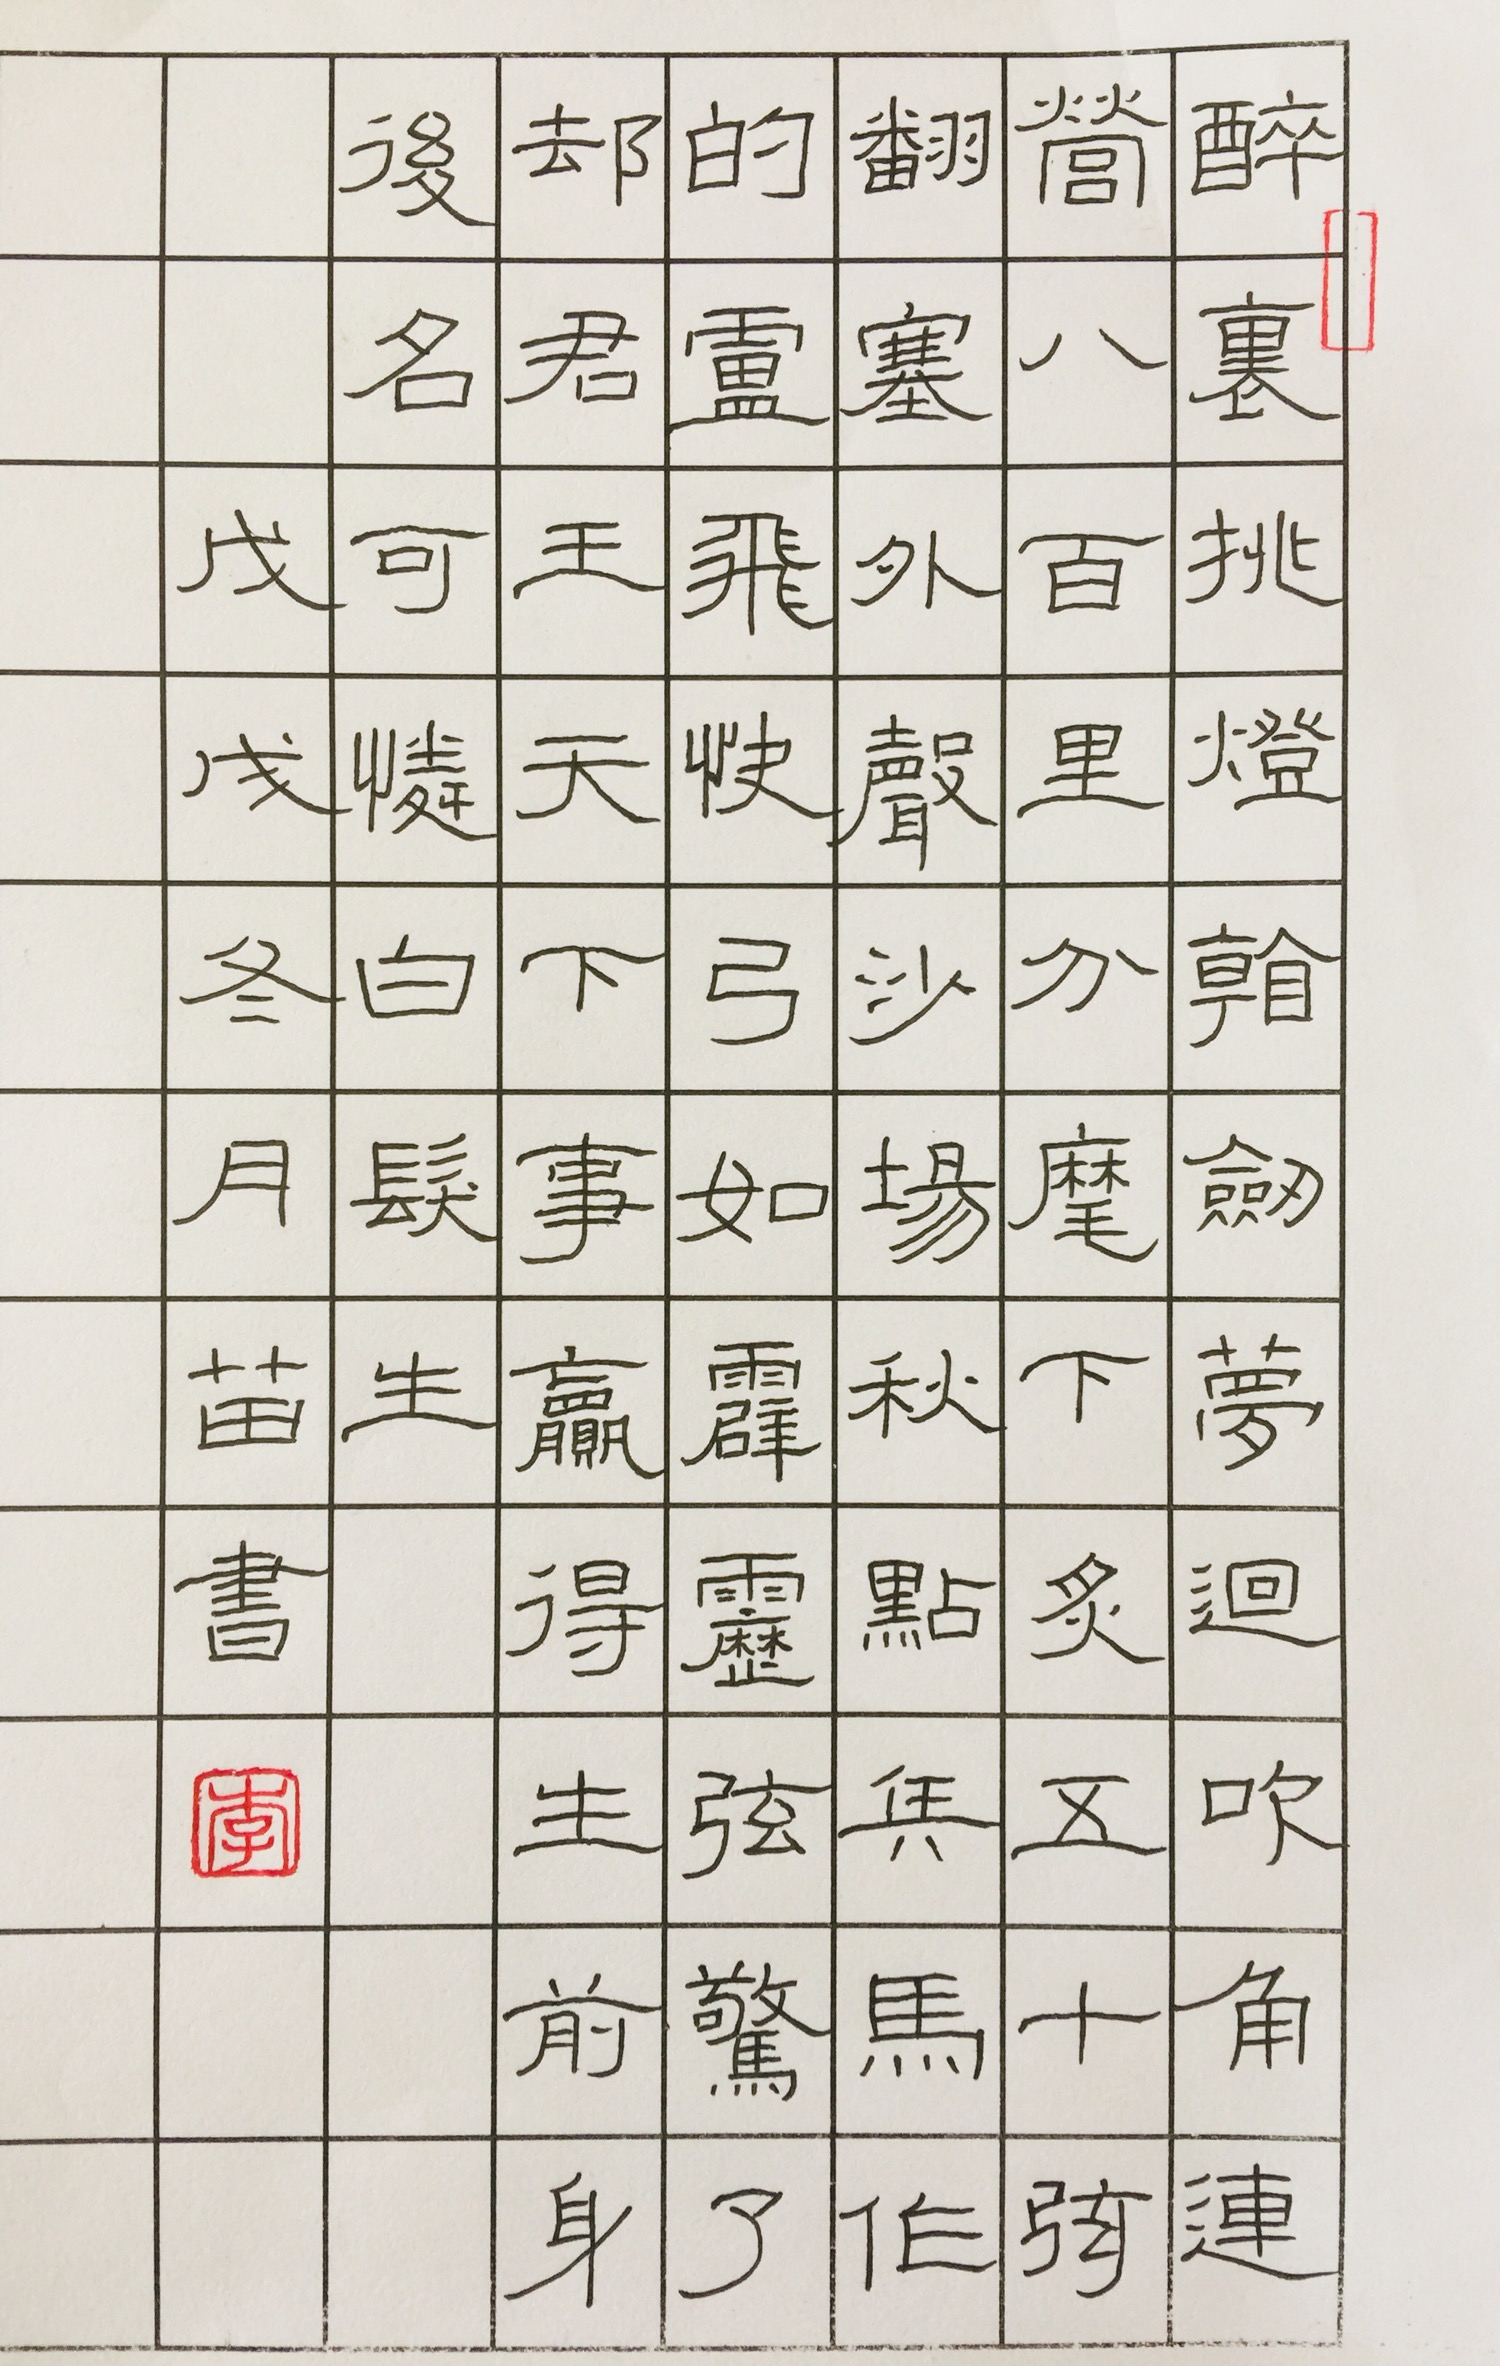 醉裏挑燈看劒夢迴吹角連
營八百里分麾下炙五十弦
翻塞外聲沙場秋點兵馬作
的盧飛快弓如霹靂弦驚了
却君王天下事贏得生前身
後名可憐白髮生
戊戌冬月苗書
李